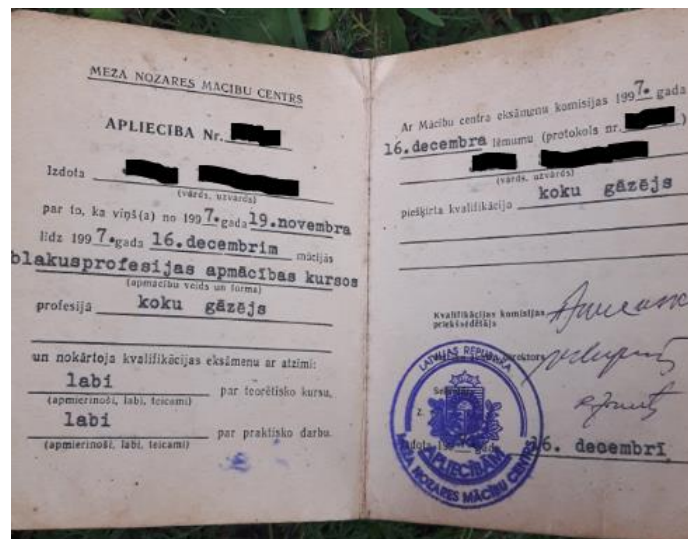 MEŽA NOZARES MĀCĪBU CENTRS
APLIECĪBA Nr.
Izdota
(vārds, uzvārds)
par to, ka viņš(a) no 1997. gada 19. novembra
līdz 1997. gada 16. decembrim mācījās
blakusprofesijas apmācības kursos
(apmācību veids un forma)
profesijā koku gāzējs
un nokārtoja kvalifikācijas eksāmenu ar atzīmi:
labi par teorētisko kursu,
(apmierinoši, labi, teicami)
labi par praktisko darbu.
(apmierinoši, labi, teicami)
Ar Mācību centra eksāmenu komisijas 1997. gada
16. decembra lēmumu (protokols nr. )
(vārds, uzvārds)
piešķirta kvalifikācija koku gāzējs
Kvalifikācijas komisijas
priekšsēdētājs
direktors
Z.
16. decembrī
LATVIJAS REPUBLIKA
APLIECĪBAI
MEŽA NOZARES MĀCĪBU CENTRS